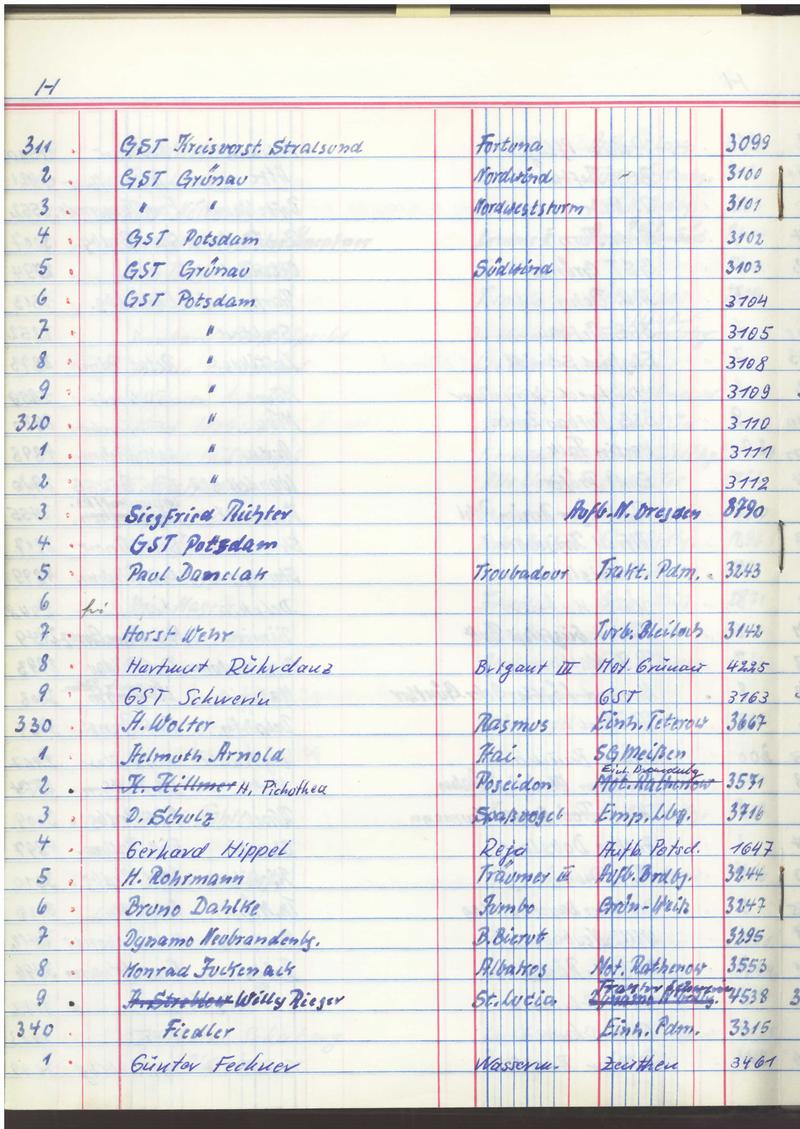 H
311 . GST Kreisvorst. Stralsund Fortuna 3099
2 . GST Grünau Nordwind 3100
3 . " " Nordweststurm 3101
4 . GST Potsdam 3102
5 . GST Grünau Südwind 3103
6 . GST Potsdam 3104
7 . " 3105
8 . " 3108
9 . " 3109
320 " 3110
1 . " 3111
2 . " 3112
3 . Siegfried Richter Aufb. N. Dresden 8790
4 . GST Potsdam
5 . Paul Damelak Troubadour Trakt. Pdm. 3243
6
7 . Horst Wehr Turb. Bleiloch 3142
8 . Hartmut Rührdanz Brigant III Mot. Grünau 4225
9 . GST Schwerin GST 3163
330 . H. Wolter Rasmus Einh. Teterow 3667
1 . Helmuth Arnold Hai SG Meißen
Einh. Brandenbg
2 . K. Killmer H. Poseidon Mot. Rathenow 3571
3 . D. Schulz Spaßvogel Emp. Lbg. 3716
4 . Gerhard Hippel Reja Aufb. Potsd. 1647
5 . H. Rohrmann Träumer III Aufb. Brdbg. 3244
6 . Bruno Dahlke Jumbo Grün-Weiß 3247
7 . Dynamo Neubrandenbg. B. Bierut 3295
8 . Konrad Juckenack Albatros Mot. Rathenow 3553
Traktor Schwerin
9 . A. Strehlow Willy Rieger St. Lucia Dynamo 4538 3
340 . Fiedler Einh. Pdm. 3315
1 . Günter Fechner Wasserm. Zeuthen 3461